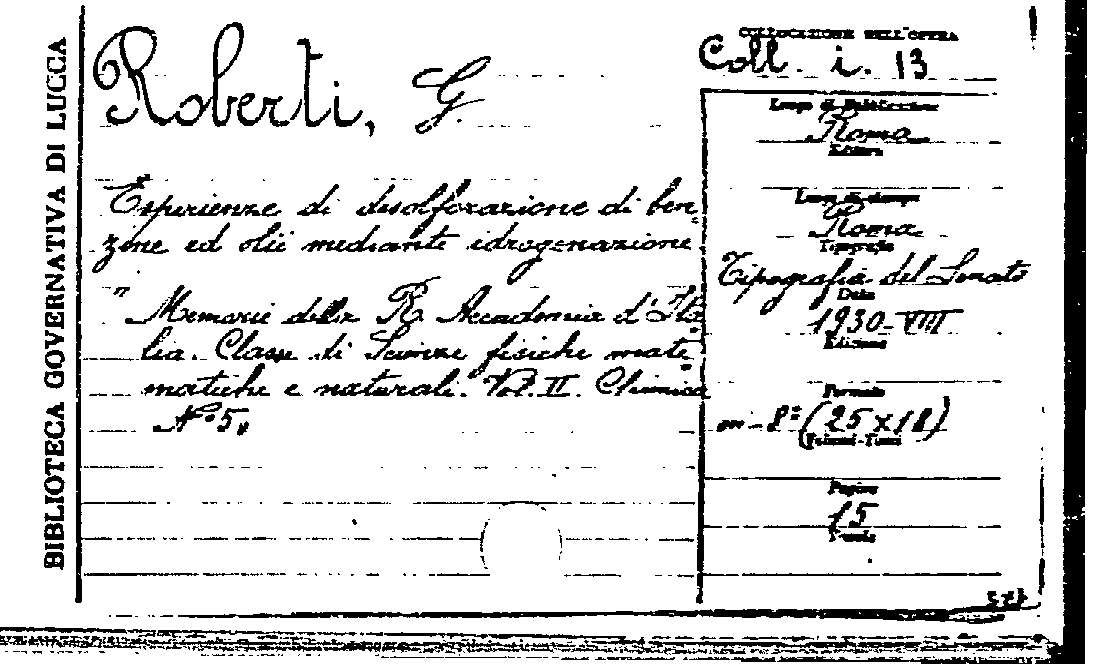 BIBLIOTECA GOVERNATIVA DI LUCCA
Roberti, G.
Esperienze di disolforazione di ben-
zine ed olii mediante idrogenazione.
"Memorie della R. Accademia d'Ita-
lia. Classe di Scienze fisiche mate-
matiche e naturali. Vol. II. Chimica
N° 5"
COLLOCAZIONE DELL'OPERA
Coll. i. 13
Luogo di Pubblicazione
Roma
Editore
Luogo di stampa
Roma
Tipografia
Tipografia del Senato
Data
1930-VIII
Edizione
Formato
in-8° (25x18)
Pagine
15
Tavole